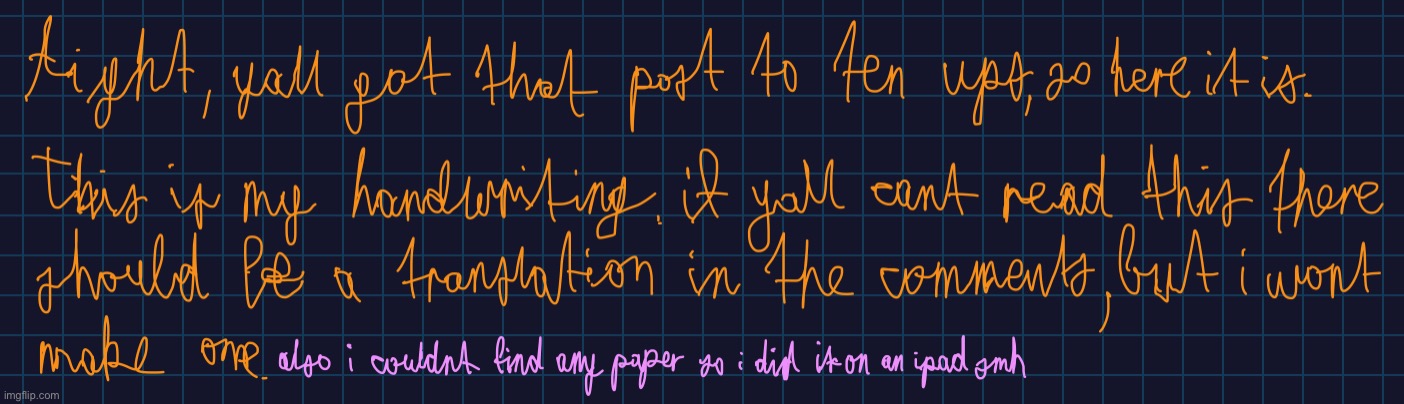 tight, yall got that post to ten ups, so here it is.
This is my handwriting. if yall cant read this there
should be a translation in the comments, but i wont
make one. also i couldnt find any paper so i did it on an ipad smh
imgflip.com